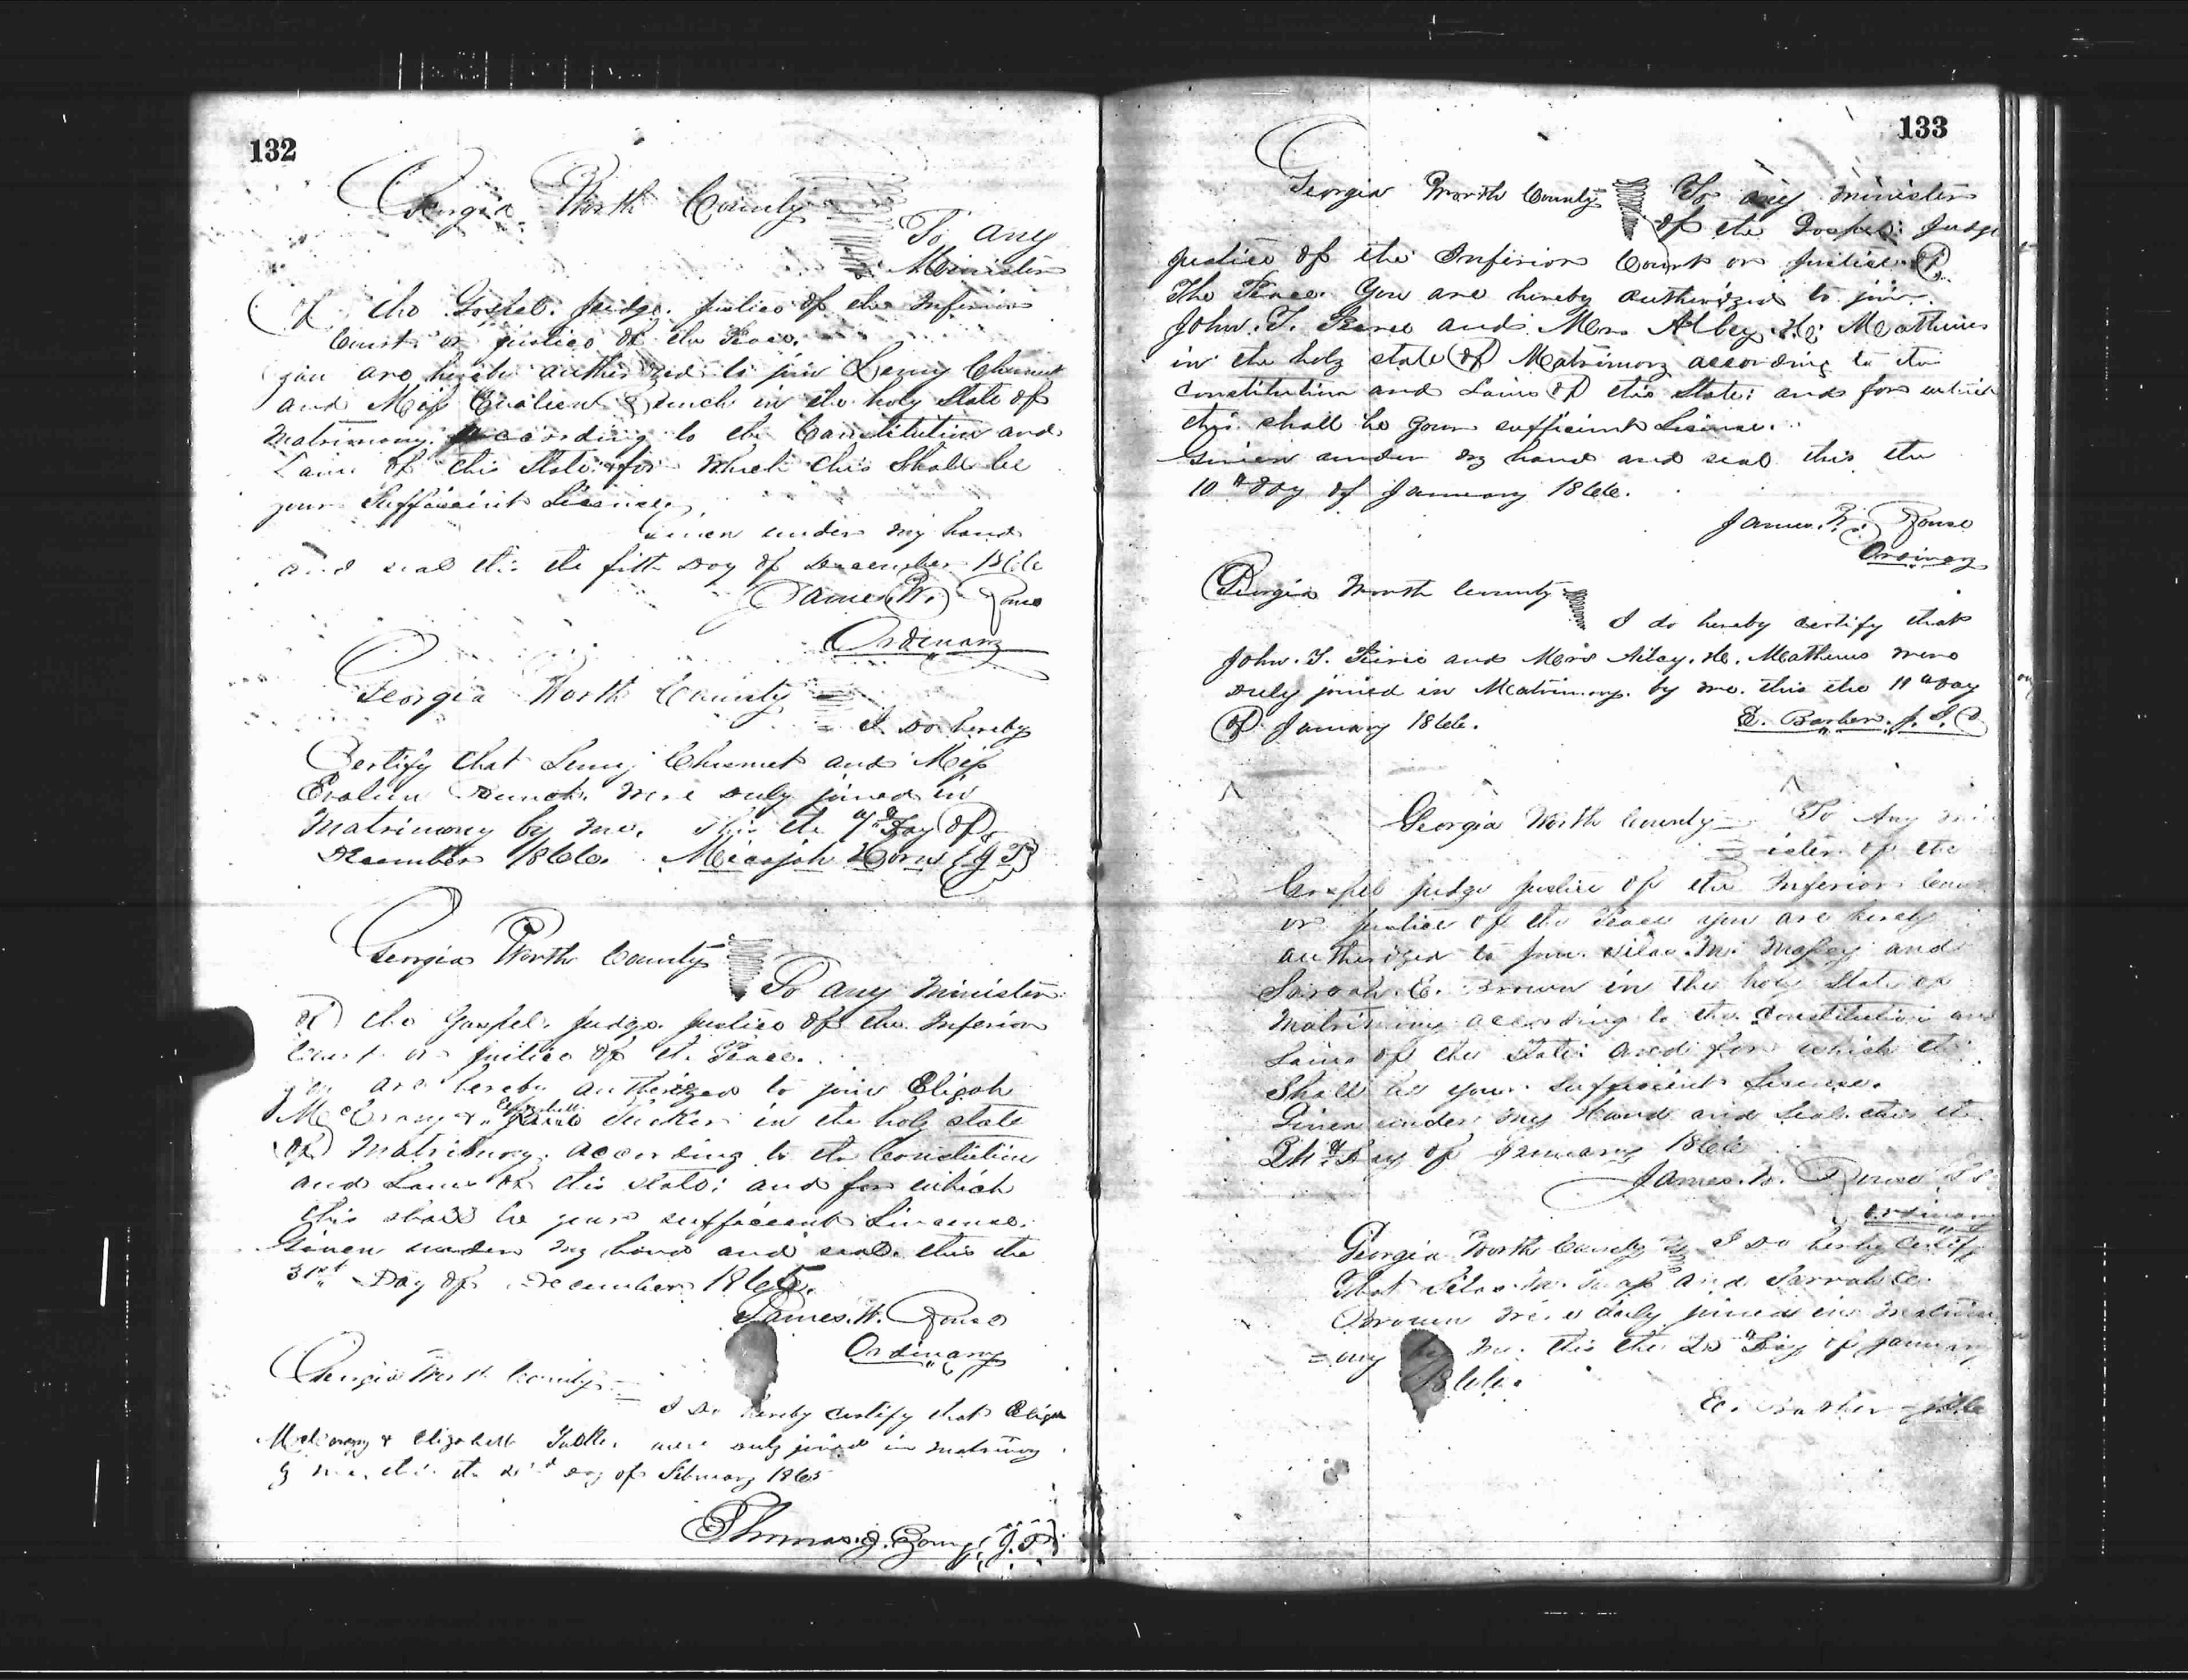 132
Georgia Worth County
To any
Minister
Of the Gospel. Judge. justice of the Inferior
Court or justice of the Peace.
you are hereby authorized to join
and Miss in the holy State of
Matrimony. According to the Constitution and
Laws of this State for which this Shall be
your Sufficient
Given under my hand
and seal this the fifth Day of December 1866
James W. Rouse
Ordinary
Georgia Worth County
I Do hereby
Certify that and Miss
were duly joined in
Matrimony by me. This the 7th Day of
December 1866. Micajah Horn (J P)
Georgia Worth County
To any Minister
of the Gospel. Judge. justice of the Inferior
Court or justice of the Peace.
you are hereby authorized to join Eligah
Elizabeth
Tucker in the holy state
of Matrimony. according to the Constitution
and Laws of this State: and for which
this shall be your sufficient
Given under my hand and seal this the
31st Day of December 1865.
James. W. Rouse
Ordinary
Georgia Worth County
I Do hereby certify that
& Elizabeth were duly joined in matrimony
by me, this the day of February 1865
Thomas. J. (J. P)
133
Georgia Worth County To any minister
of the Gospel: Judge
justice of the Inferior Court or justice of
The Peace. You are hereby authorized to join
John. T. and Mrs H. Mathews
in the holy state of Matrimony according to the
constitution and Laws of this State: and for which
this shall be your sufficient
Given under my hand and seal this the
10th day of January 1866.
James. W. Rouse
Ordinary
Georgia Worth County
I do hereby certify that
John. T. and Mrs H. Mathews were
duly joined in Matrimony. by me. this the 11th Day
of January 1866. E. Barber. J. I. C
Georgia Worth County To Any min
ister of the
Gospel judge justice of the Inferior Court
or justice of the Peace you are hereby
authorized to join Silas. M. and
Sarrah. E. Brown in the holy State of
Matrimony according to the Constitution and
Laws of the State: and for which this
Shall be your sufficient
Given under my Hand and Seal this the
Day of January 1866
James. W. Rouse
ordinary
Georgia Worth County I Do hereby Certify
That Silas. M. and Sarrah E.
Brown were duly joined in matrim
=ony by me. this the Day of January
1866.
E. Barber